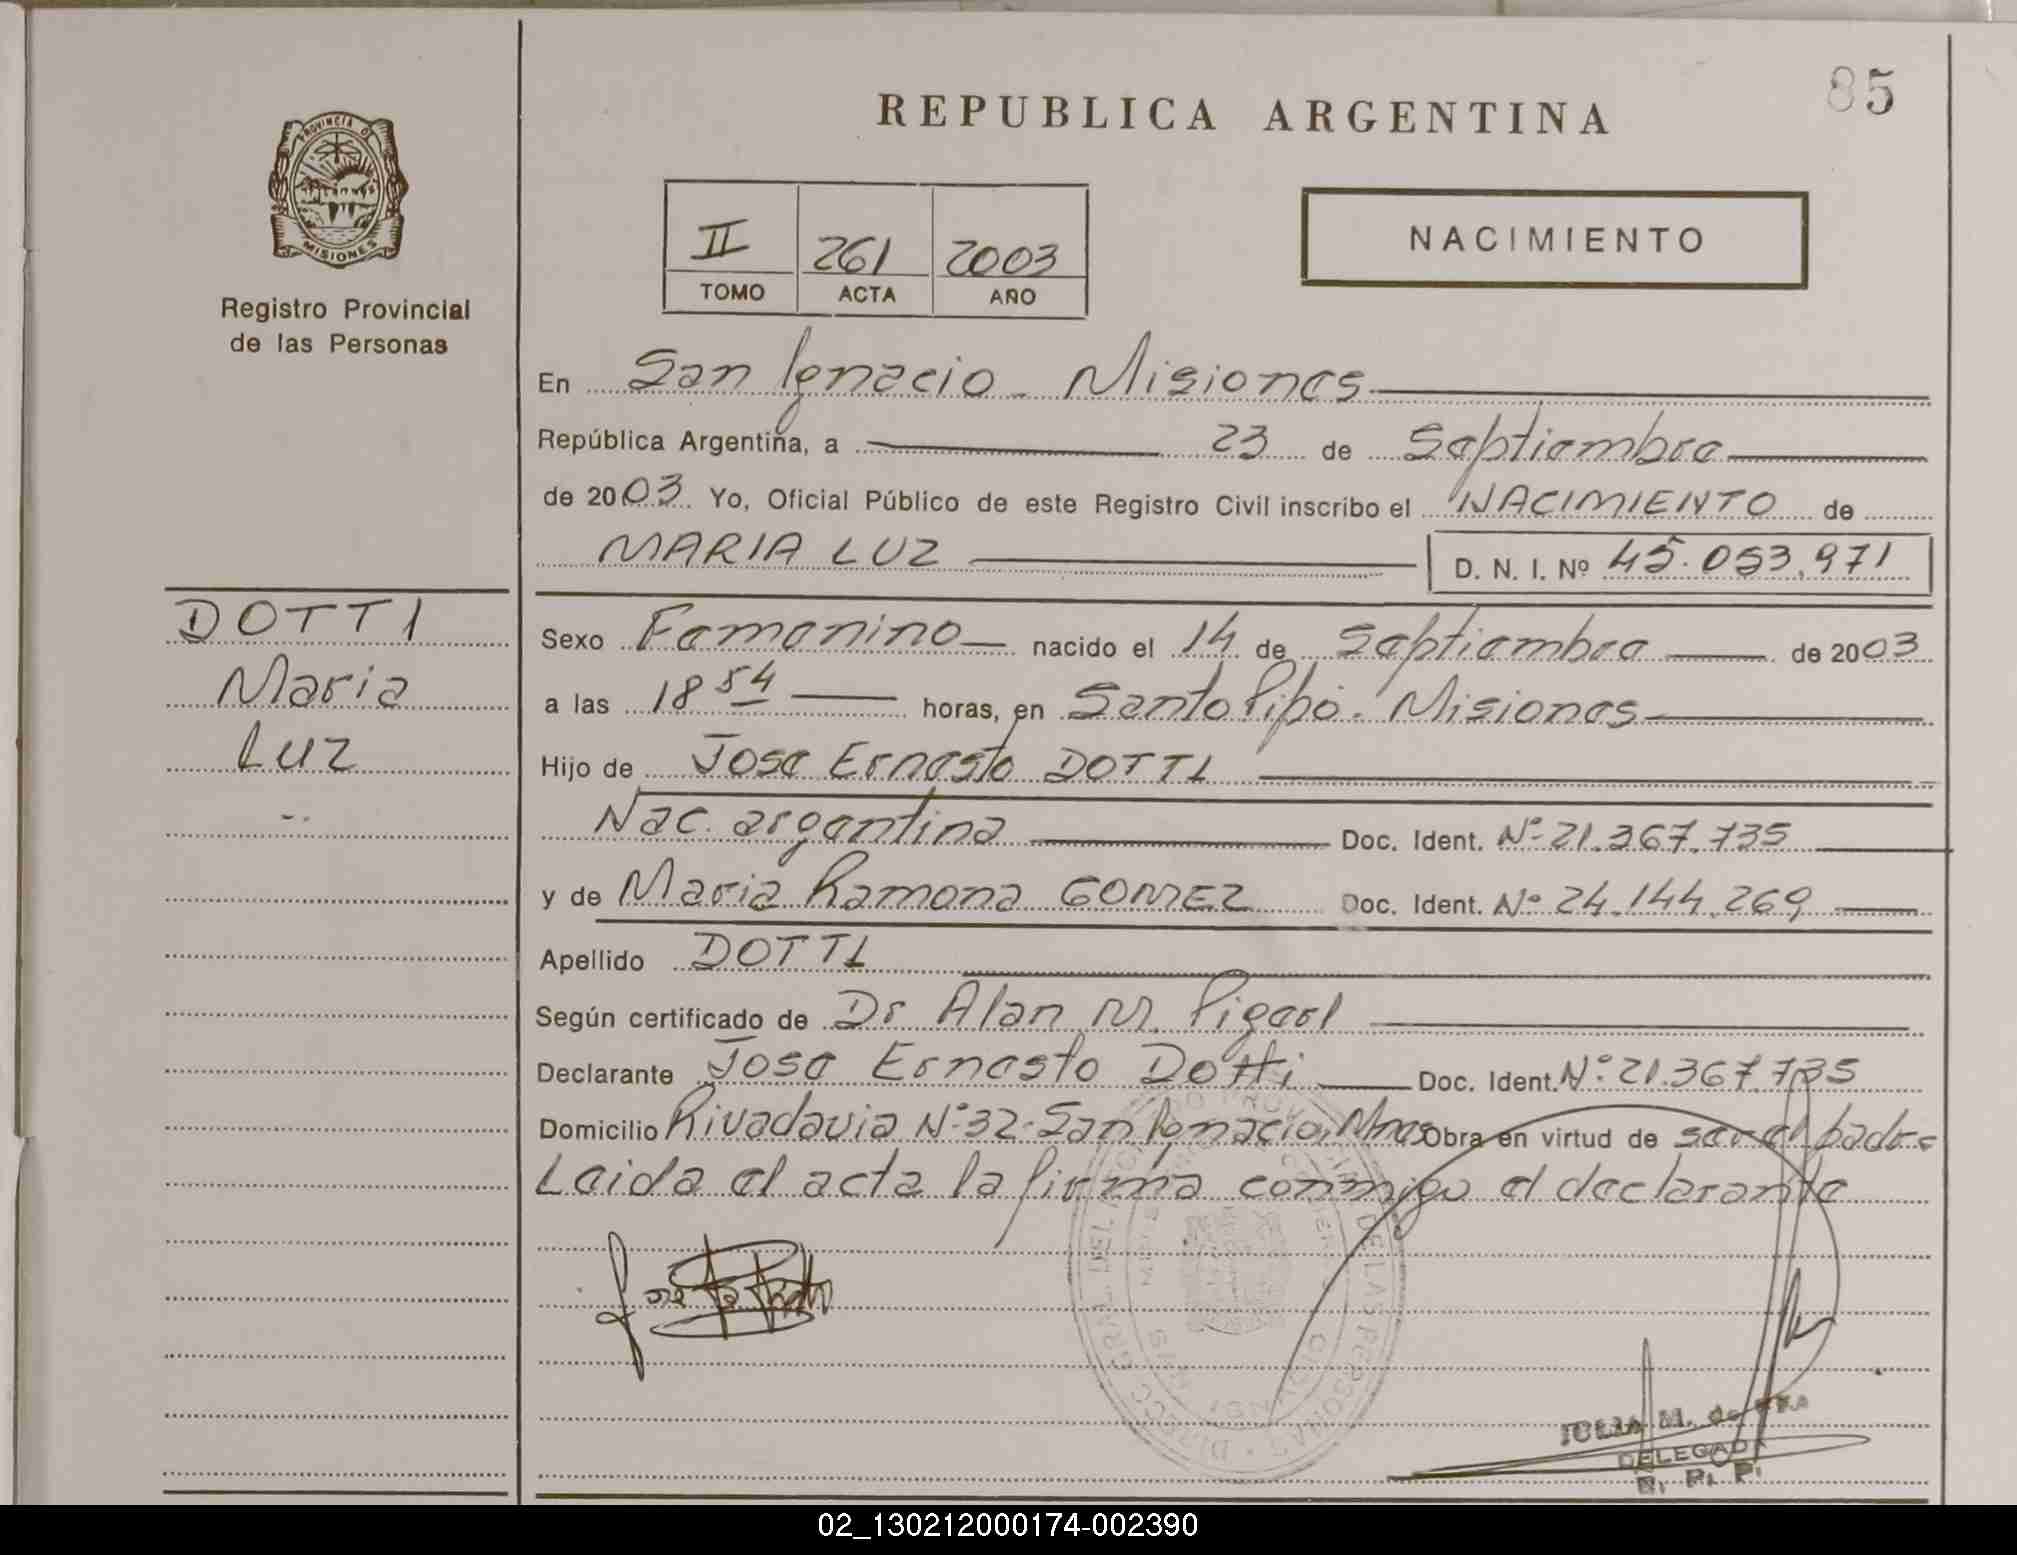 85
REPUBLICA ARGENTINA
PROVINCIA D
MISIONES
Registro Provincial
de las Personas
II 261 2003
TOMO ACTA AÑO
NACIMIENTO
En San Ignacio - Misiones
República Argentina, a 23 de Septiembre
de 2003. Yo, Oficial Público de este Registro Civil inscribo el NACIMIENTO de
MARIA LUZ D. N. I. Nº 45.053.971
DOTTI
Maria
Luz
Sexo Femenino nacido el 14 de Septiembre de 2003
a las 18 54 horas, en Santo Pipó - Misiones
Hijo de Jose Ernesto DOTTI
Nac. argentina Doc. Ident. Nº 21.367.735
y de Maria Ramona GOMEZ Doc. Ident. Nº 24.144.269
Apellido DOTTI
Según certificado de Dr Alan M.
Declarante Jose Ernesto Dotti Doc. Ident. Nº 21.367.735
Domicilio Rivadavia Nº 32 - San Ignacio, Mnes Obra en virtud de ser el padre
Leida el acta la firma conmigo el declarante
DELEGADA
R. P. P.
02_130212000174-002390